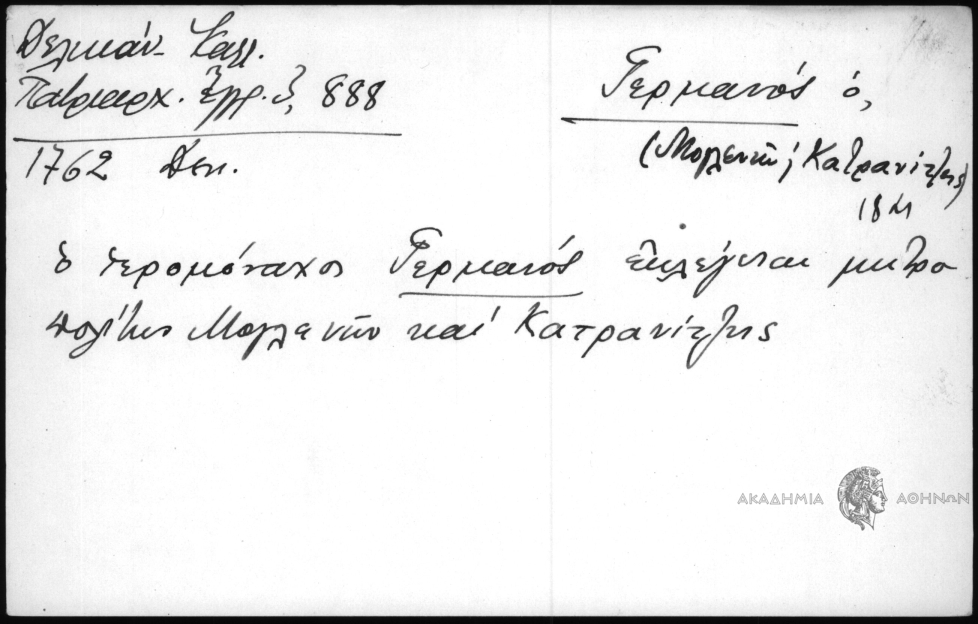 Δελικάν. Καλλ.
Πατριαρχ. Ἔγγρ. 3, 888
1762 Δεκ.
Γερμανός ὁ,
(Μογλενῶν; Κατρανίτζης)
18
ὁ ἱερομόναχος Γερμανός ἐκλέγεται μητρο
πολίτης Μογλενῶν καί Κατρανίτζης
ΑΚΑΔΗΜΙΑ ΑΘΗΝΩΝ